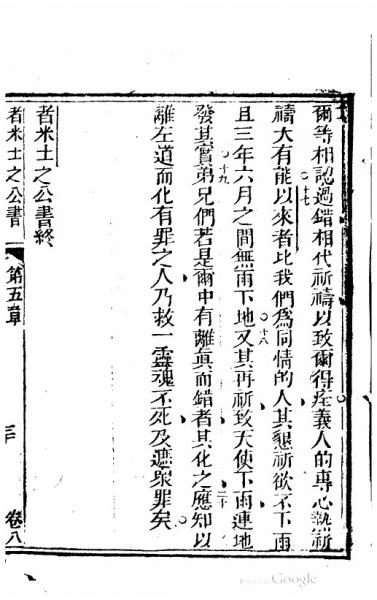 爾等相認過錯相代祈禱以致爾得痊義人的專心熱祈
十七
禱大有能以來者比我們為同情的人其懇祈欲不下雨
且三年六月之間無雨下地又其再祈致天使下雨連地
十八
發其實弟兄們若是爾中有離眞而錯者其化之應知以
十九
二十
離左道而化有罪之人乃救一靈魂不死及遮眾罪矣
者米士之公書終
者米士之公書
第五章
三
卷八
Google